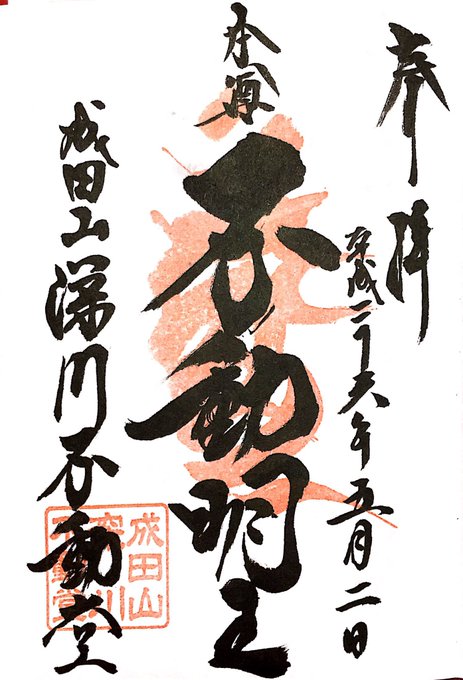 奉拝
平成二十六年五月二日
本尊
不動明王
成田山深川不動堂
成田山
深川
不動堂